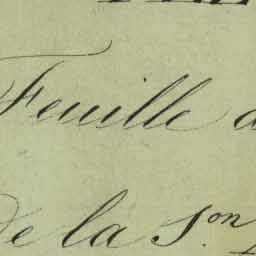 Feuille d
De la S.on